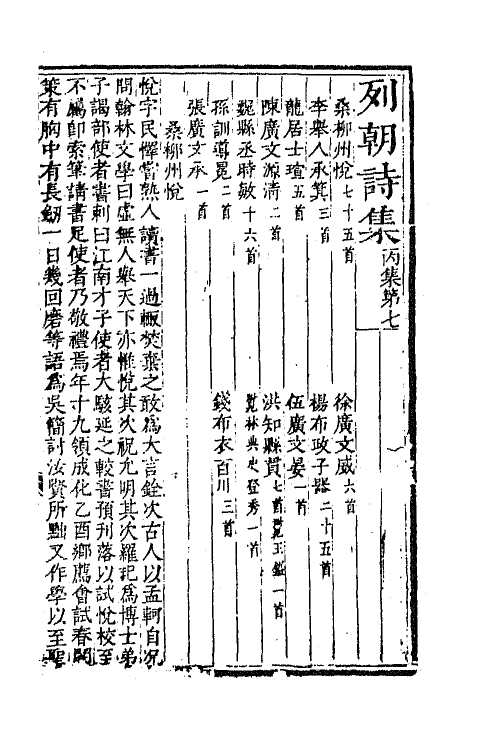 列朝詩集丙集第七
桑柳州悅七十五首　徐廣文威六首
李舉人承箕三首　楊布政子器二十五首
龍居士瑄五首　伍廣文晏一首
陳廣文源清二首　洪知縣貫七首　王鑑一首
魏縣丞時敏十六首　林典史登秀一首
孫訓導冕二首　錢布衣百川三首
張廣文承一首
桑柳州悅
悅字民懌常熟人讀書一過輒焚棄之敢為大言銓次古人以孟軻自況
問翰林文學曰虛無人舉天下亦惟悅其次祝允明其次羅玘為博士弟
子謁部使者書刺曰江南才子使者大駭延之較書預刋落以試悅校至
不屬即索筆請書足使者乃敬禮焉年十九領成化乙酉鄉薦會試春闈
策有胸中有長劒一日幾回磨等語為吳簡討汝賢所黜又作學以至聖